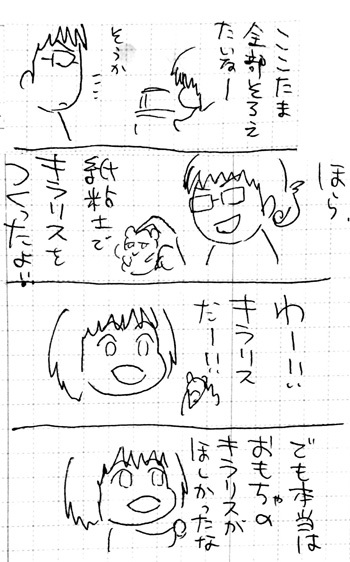 ここたま
全部そろえ
たいなー
そうか
ほら、
紙粘土で
キラリスを
つくったよ!!
わーい
キラリス
だー!!
でも本当は
おもちゃの
キラリスが
ほしかったな